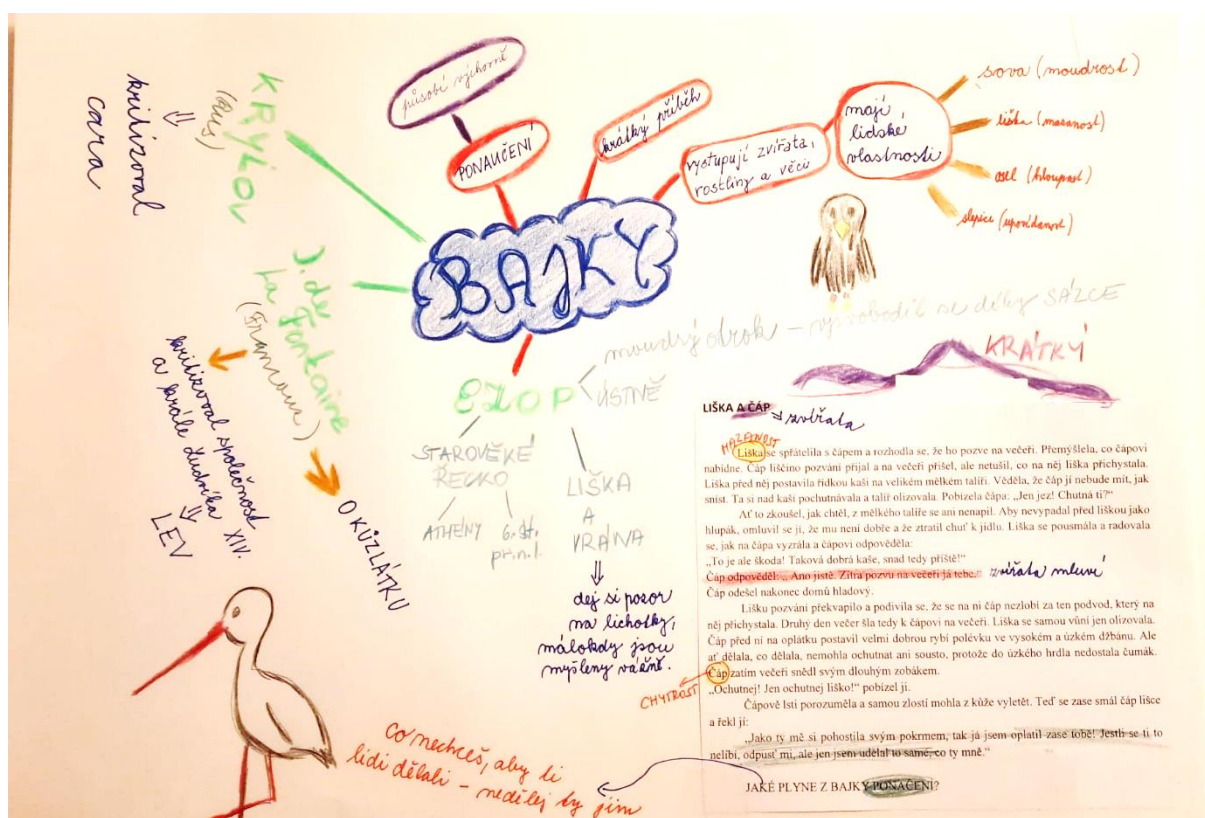 BAJKY
působí výchovně
PONAUČENÍ
krátký příběh
vystupují zvířata,
rostliny a věci
mají
lidské
vlastnosti
sova (moudrost)
liška (mazanost)
osel (hloupost)
slepice (upovídanost)
KRYLOV
(Rus)
kritizoval
cara
J. de
La Fontaine
(Francouz)
kritizoval společnost
a krále Ludvíka XIV.
LEV
O KŮZLÁTKU
EZOP
moudrý otrok – vysvobodil se díky SÁZCE
ÚSTNĚ
STAROVĚKÉ
ŘECKO
ATHÉNY
6. st.
př. n. l.
LIŠKA
A
VRÁNA
dej si pozor
na lichotky,
málokdy jsou
myšleny vážně.
KRÁTKÝ
LIŠKA A ČÁP
zvířata
MAZANOST
Liška se spřátelila s čápem a rozhodla se, že ho pozve na večeři. Přemýšlela, co čápovi
nabídne. Čáp liščino pozvání přijal a na večeři přišel, ale netušil, co na něj liška přichystala.
Liška před něj postavila řídkou kaši na velikém mělkém talíři. Věděla, že čáp jí nebude mít, jak
sníst. Ta si nad kaší pochutnávala a talíř olizovala. Pobízela čápa: „Jen jez! Chutná ti?“
Ať to zkoušel, jak chtěl, z mělkého talíře se ani nenapil. Aby nevypadal před liškou jako
hlupák, omluvil se jí, že mu není dobře a že ztratil chuť k jídlu. Liška se pousmála a radovala
se, jak na čápa vyzrála a čápovi odpověděla:
„To je ale škoda! Taková dobrá kaše, snad tedy příště!“
Čáp odpověděl: „ Ano jistě. Zítra pozvu na večeři já tebe.“
zvířata mluví
Čáp odešel nakonec domů hladový.
Lišku pozvání překvapilo a podivila se, že se na ni čáp nezlobí za ten podvod, který na
něj přichystala. Druhý den večer šla tedy k čápovi na večeři. Liška se samou vůní jen olizovala.
Čáp před ní na oplátku postavil velmi dobrou rybí polévku ve vysokém a úzkém džbánu. Ale
ať dělala, co dělala, nemohla ochutnat ani sousto, protože do úzkého hrdla nedostala čumák.
Čáp zatím večeři snědl svým dlouhým zobákem.
CHYTROST
„Ochutnej! Jen ochutnej liško!“ pobízel ji.
Čápově lsti porozuměla a samou zlostí mohla z kůže vyletět. Teď se zase smál čáp lišce
a řekl jí:
„Jako ty mě si pohostila svým pokrmem, tak já jsem oplatil zase tobě! Jestli se ti to
nelíbí, odpusť mi, ale jen jsem udělal to samé, co ty mně.“
JAKÉ PLYNE Z BAJKY PONAČENÍ?
Co nechceš, aby ti
lidi dělali – nedělej ty jim